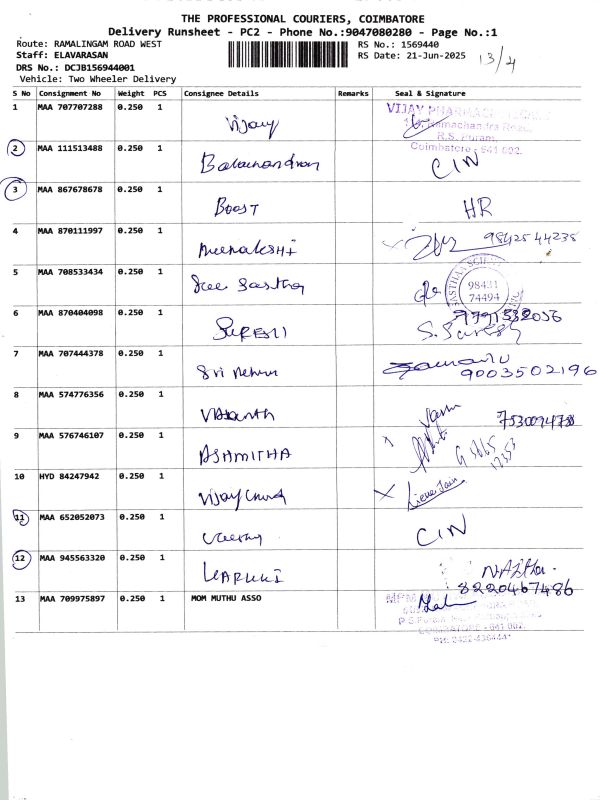 THE PROFESSIONAL COURIERS, COIMBATORE
Delivery Runsheet - PC2 - Phone No.:9047080280 - Page No.:1
Route: RAMALINGAM ROAD WEST
RS No.: 1569440
13/4
Staff: ELAVARASAN
RS Date: 21-Jun-2025
DRS No.: DCJB156944001
Vehicle: Two Wheeler Delivery
S No Consignment No Weight PCS Consignee Details Remarks Seal & Signature
1 MAA 707707288 0.250 1 Vijay
VIJAY PHARMA
Ramachandra Road,
R.S. Puram,
Coimbatore - 641 002.
2 MAA 111513488 0.250 1 Balachandran CIN
3 MAA 867678678 0.250 1 BOOST HR
4 MAA 870111997 0.250 1 MeenakSHi 9842544235
5 MAA 708533434 0.250 1 Sree Sastha
98431
74494
6 MAA 870404098 0.250 1 SURESH
S. Suresh
7 MAA 707444378 0.250 1 Sri Nehru
9003502196
8 MAA 574776356 0.250 1 Vasanth
9 MAA 576746107 0.250 1 ASHMITHA
10 HYD 84247942 0.250 1 Vijay Chund
11 MAA 652052073 0.250 1 CIN
12 MAA 945563320 0.250 1
8220467486
13 MAA 709975897 0.250 1 MOM MUTHU ASSO
COIMBATORE - 641 002.